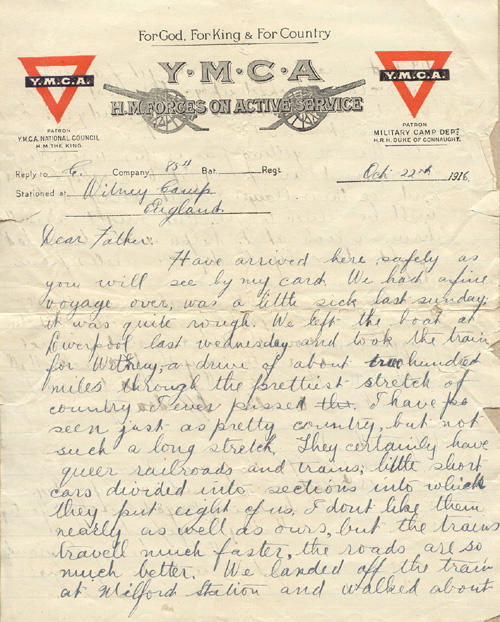 For God, For King & For Country
Y·M·C·A
H.M. FORCES ON ACTIVE SERVICE
Y.M.C.A.
PATRON
Y.M.C.A. NATIONAL COUNCIL
H.M. THE KING.
Y.M.C.A.
PATRON
MILITARY CAMP DEPT
H.R.H. DUKE OF CONNAUGHT.
Reply to E. Company 85th Bat. Regt. Oct. 22nd 1916
Stationed at Witney Camp
England.
Dear Father:
Have arrived here safely as
you will see by my card. We had a fine
voyage over, was a little sick last sunday,
it was quite rough. We left the boat at
Liverpool last wednesday and took the train
for Witney, a drive of about two hundred
miles through the prettiest stretch of
country I ever passed thr. I have
seen just as pretty country, but not
such a long stretch. They certainly have
queer railroads and trains, little short
cars divided into sections into which
they put eight of us. I dont like them
nearly as well as ours, but the trains
travell much faster, the roads are so
much better. We landed off the train
at Milford Station and walked about